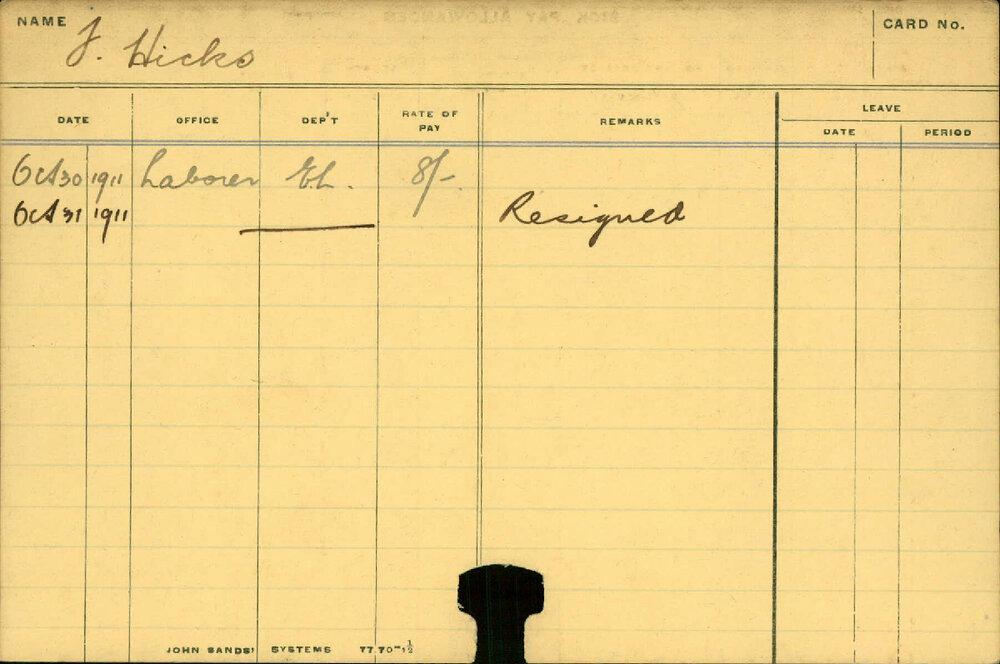 NAME J. Hicks CARD No.
DATE OFFICE DEP'T RATE OF PAY REMARKS LEAVE
DATE PERIOD
Oct 30 1911 Laborer E.L. 8/-
Oct 31 1911 Resigned
JOHN SANDS' SYSTEMS 77.70